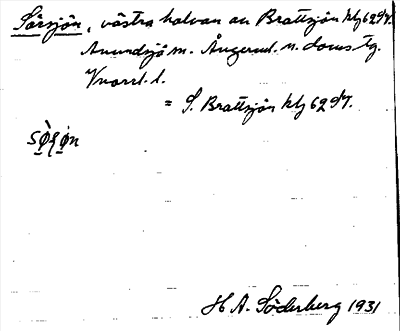 Sörsjön, västra halvan av Brattsjön klj 62 d4.
Anundsjö sn. Ångerml. n. doms tg.
Vnorrl. l.
= S. Brattsjön klj 62 d4.
sö̀ʂø̣n
H A. Söderberg 1931